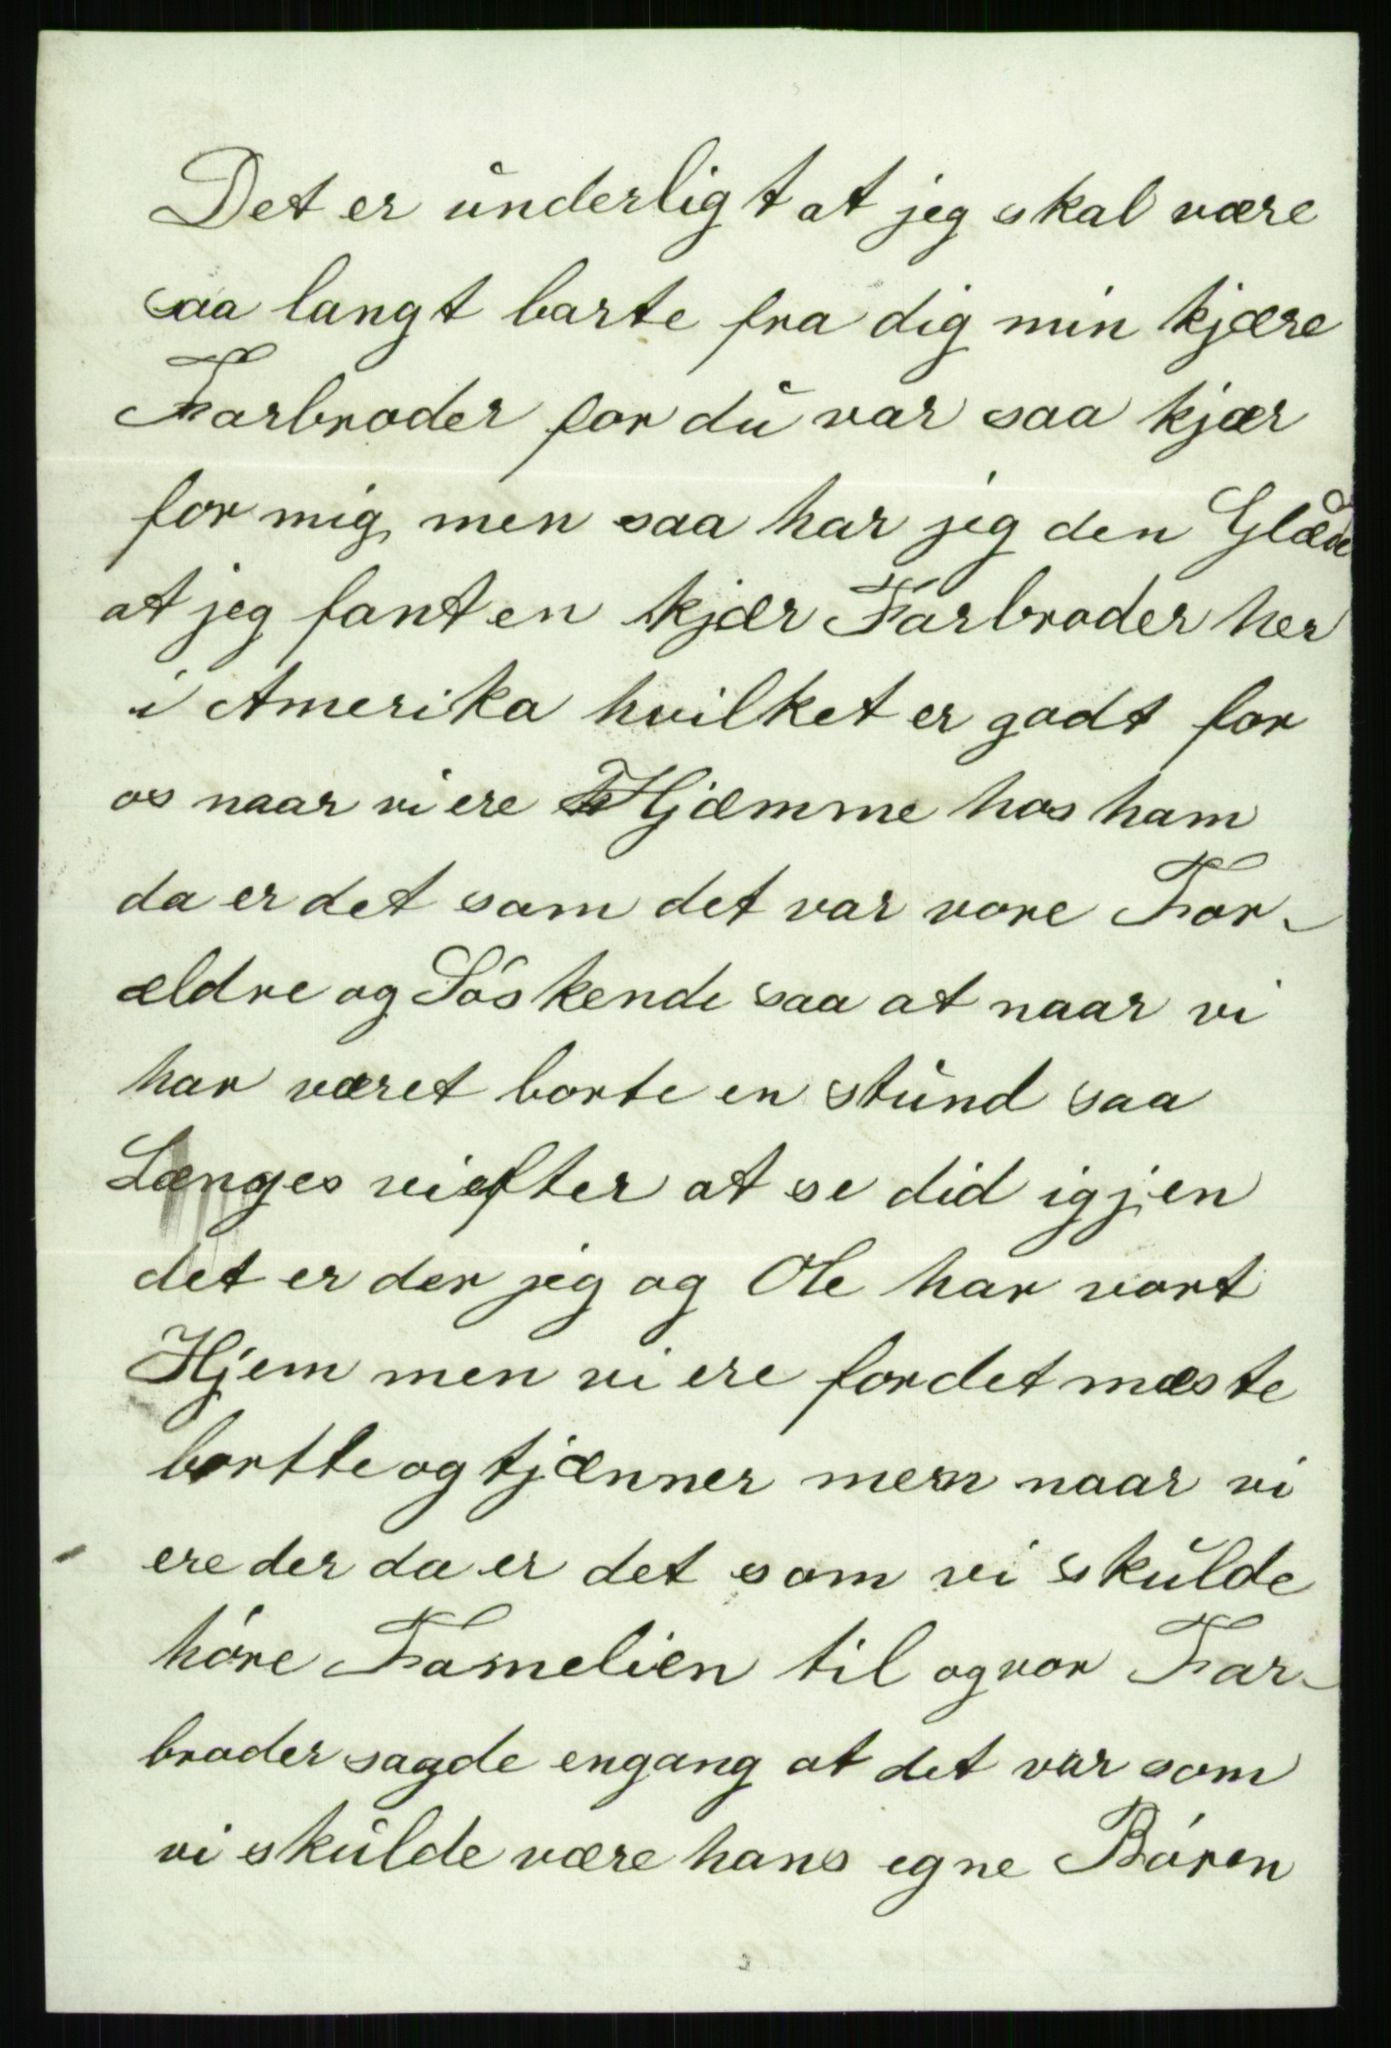 Det er underligt at jeg skal være
saa langt borte fra dig min kjære
Farbroder for du var saa kjær
for mig, men saa har jeg den Glæde
at jeg fant en kjær Farbroder her
i Amerika hvilket er godt for
os naar vi ere Hjæmme hos ham
da er det som det var vore For-
ældre og Söskende saa at naar vi
har været borte en stund saa
Længes vi efter at se did igjen
det er der jeg og Ole har vort
Hjem men vi ere for det mæste
bortte og tjænner men naar vi
ere der da er det som vi skulde
höre Famelien til og vor Far-
broder sagde engang at det var som
vi skulde være hans egne Bóren